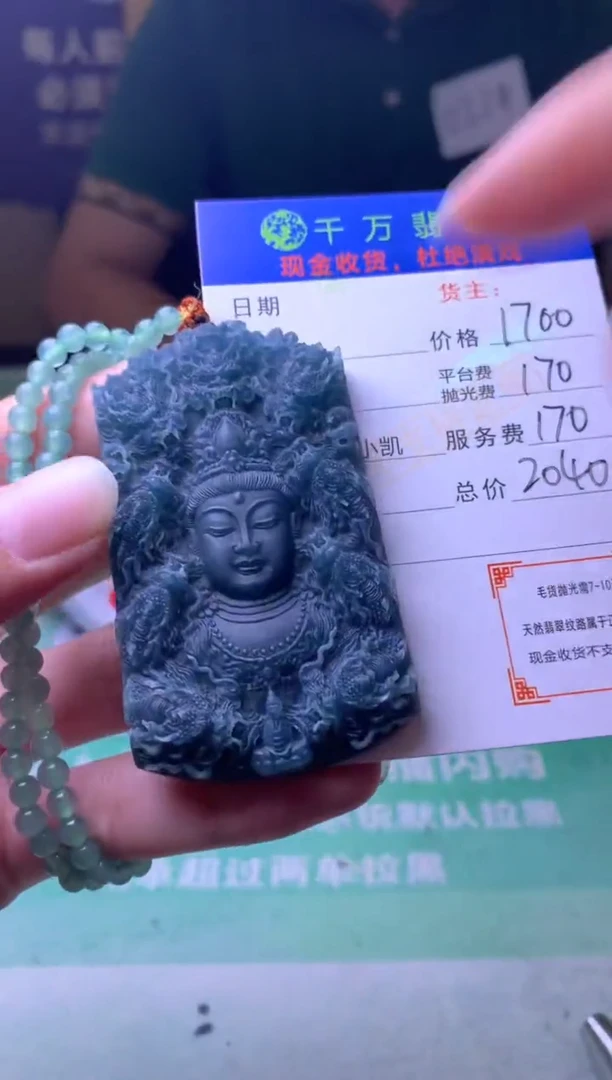 千万翡
现金收货，杜绝演戏
日期
货主：
价格 1700
平台费
抛光费 170
小凯 服务费 170
总价 2040
毛货抛光需7-10
天然翡翠纹路属于正
现金收货不支
默认拉黑
单超过两单拉黑